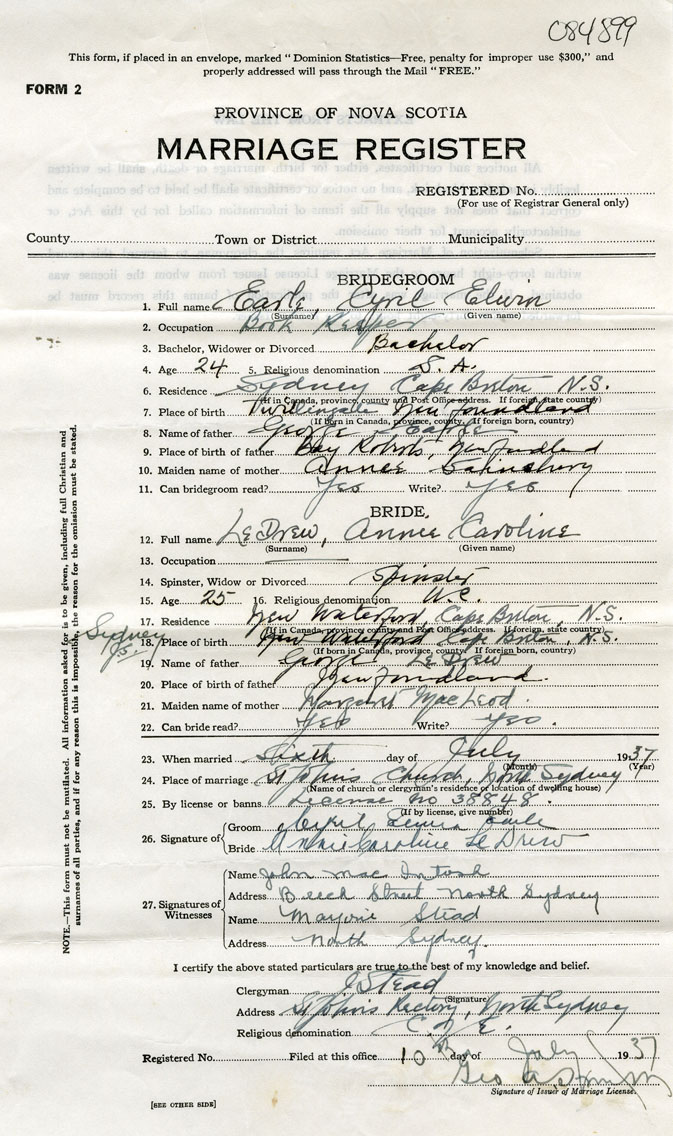 084899
This form, if placed in an envelope, marked "Dominion Statistics—Free, penalty for improper use $300," and
properly addressed will pass through the Mail "FREE."
FORM 2
PROVINCE OF NOVA SCOTIA
MARRIAGE REGISTER
REGISTERED No.
(For use of Registrar General only)
County Town or District Municipality
BRIDEGROOM
1. Full name Earle, Cyril Elwin
(Surname) (Given name)
2. Occupation Book Keeper
3. Bachelor, Widower or Divorced Bachelor
4. Age 24 5. Religious denomination S. A.
6. Residence Sydney Cape Breton N.S.
(If in Canada, province, county and Post Office address. If foreign, state country)
7. Place of birth Newfoundland
(If born in Canada, province, county. If foreign born, country)
8. Name of father George Earle
9. Place of father Bay Roberts, Newfoundland
10. Maiden name of mother Annee Sainsbury
11. Can bridegroom read? Yes Write? Yes
BRIDE
12. Full name LeDrew, Annee Caroline
(Surname) (Given name)
13. Occupation
14. Spinster, Widow or Divorced Spinster
15. Age 25 16. Religious denomination U.C.
17. Residence New Waterford, Cape Breton, N.S.
(If in Canada, province, county and Post Office address. If foreign, state country)
Sydney
18. Place of birth New Waterford Cape Breton N.S.
(If born in Canada, province, county. If foreign born, country)
19. Name of father George LeDrew
20. Place of birth of father Newfoundland.
21. Maiden name of mother Margaret MacLeod
22. Can bride read? Yes Write? Yes.
23. When married Sixth day of July 1937
(Month) (Year)
24. Place of marriage St John's Church, North Sydney
(Name of church or clergyman's residence or location of dwelling house)
25. By license or banns License no 38848.
(If by license, give number)
26. Signature of
Groom Cyril Earle
Bride Annie Caroline Le Drew
27. Signatures of Witnesses
Name John Mac Intosh
Address Beech Street North Sydney
Name Marjorie Stead
Address North Sydney.
I certify the above stated particulars are true to the best of my knowledge and belief.
Clergyman J Stead
(Signature)
Address St John's Rectory, North Sydney
Religious denomination C. of E.
Registered No. Filed at this office 10th day of July 1937
Geo
Signature of Issuer of Marriage License.
[SEE OTHER SIDE]
NOTE.—This form must not be mutilated. All information asked for is to be given, including full Christian and
surnames of all parties, and if for any reason this is impossible, the reason for the omission must be stated.